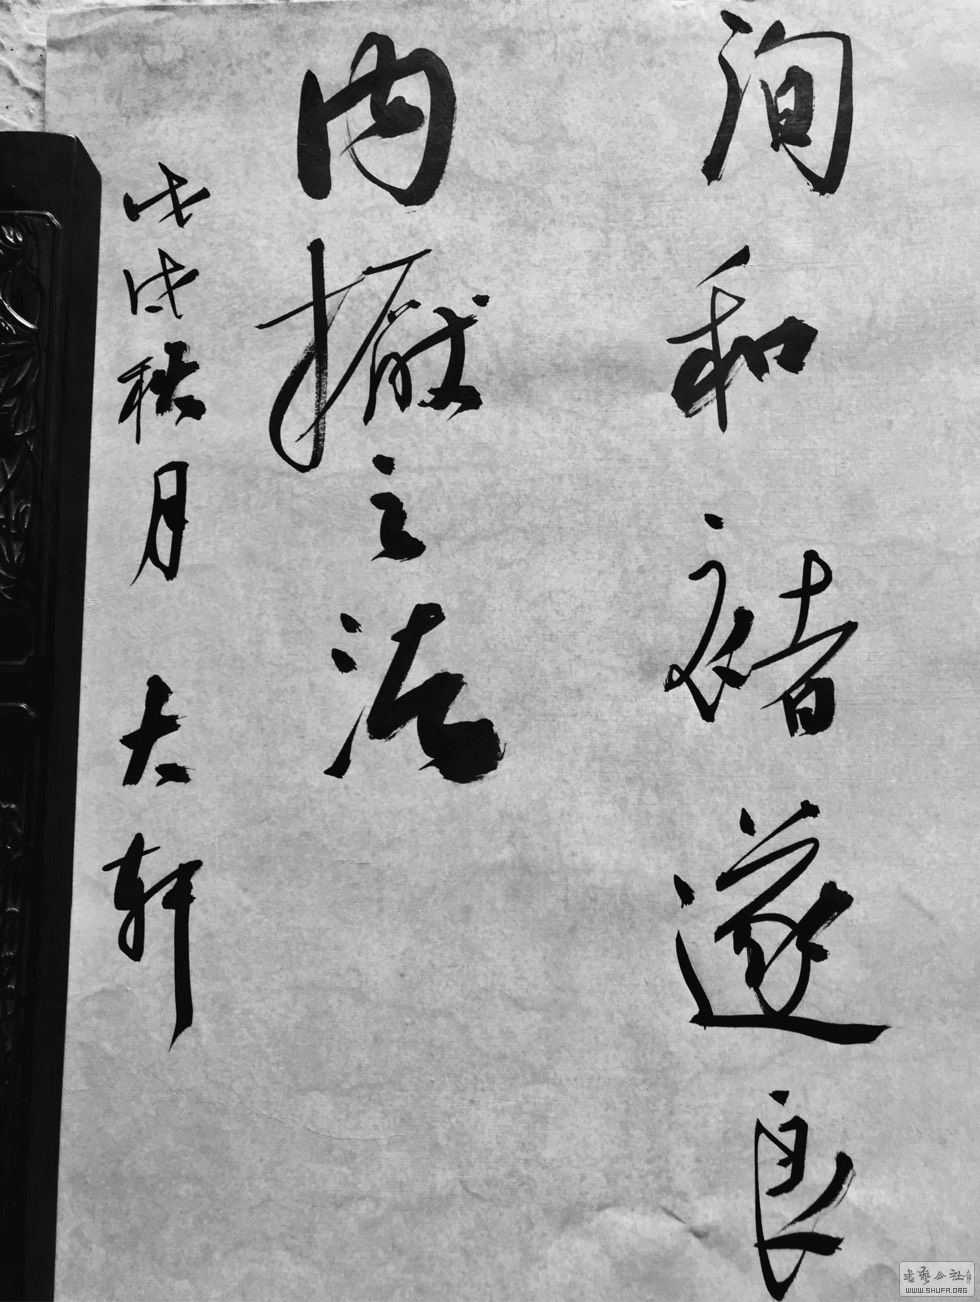 询和褚遂良
内擫之法
戊戌秋月 大轩
书艺公社
WWW.SHUFA.ORG